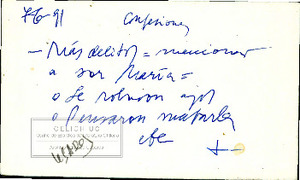 7-6-91 Confesiones
— Más delitos = mencionar
a sor María =
o Se robaron
o Pensaron matarla
etc +
CELICH UC
USADO